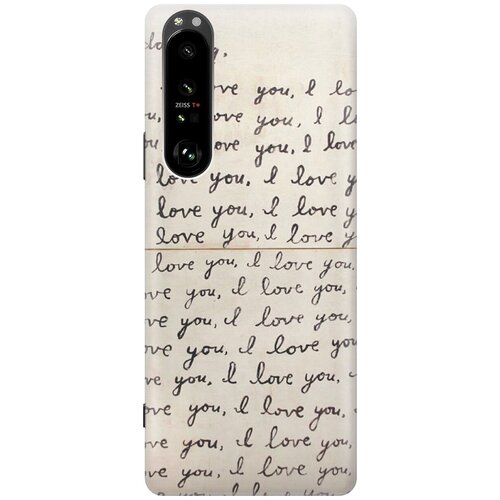 ove you, I lo
u, ove you, I l
ove you, I love
love you, I love y
love you, I love y
love you, I love y
love you, I love you,
ve you, I love you,
ve you, I love you,
ove you, I love you
ve you, I love you,
ove you, I love you,
ove you, I love you,
love you, I love you,
you, I love you,
I love you
ZEISS T*